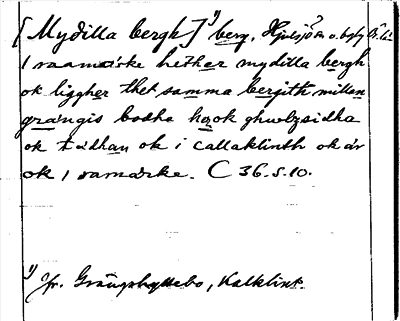 [Mydilla bergh]¹⁾ berg. Hjulsjö
1 raamærke hether mydilla bergh
ok liggher thet samma bergith millan
grængis bodha ha ok ghwlzsidha
ok tædhan ok i callaklinth ok är
ok 1 ramærke. C 36. s. 10.
¹⁾ Jr. Grängshyttebo, Kalklint.